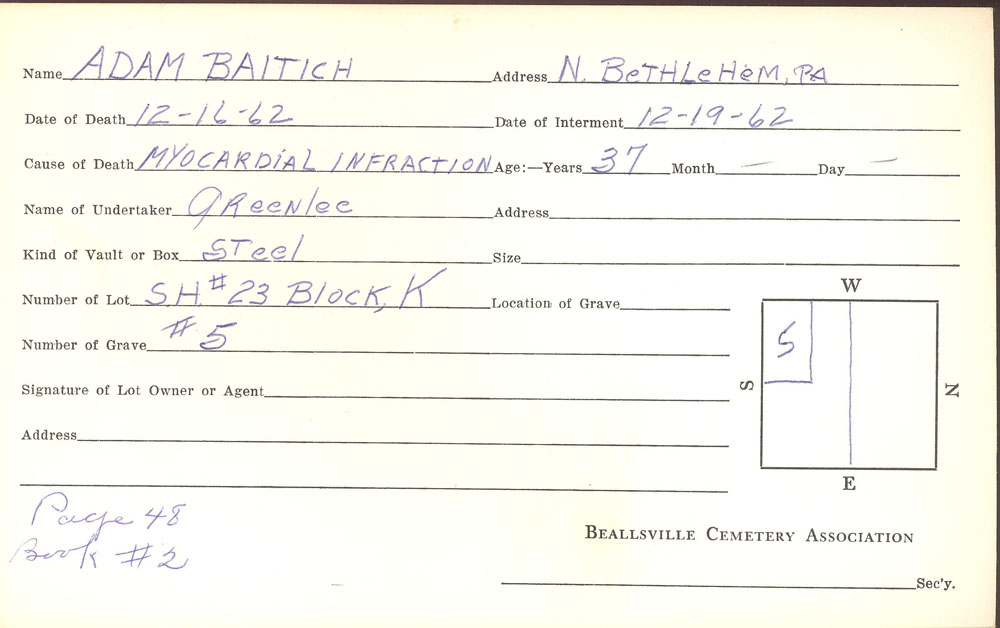 Name ADAM BAITICH Address N. BeTHLeHeM, PA
Date of Death 12-16-62 Date of Interment 12-19-62
Cause of Death MYOCARDiAL INFRACTION Age:—Years 37 Month — Day —
Name of Undertaker GReenlee Address
Kind of Vault or Box STeel Size
Number of Lot S.H. #23 Block, K Location of Grave
Number of Grave #5
W
S 5 N
E
Signature of Lot Owner or Agent
Address
Page 48
Book #2
BEALLSVILLE CEMETERY ASSOCIATION
Sec'y.